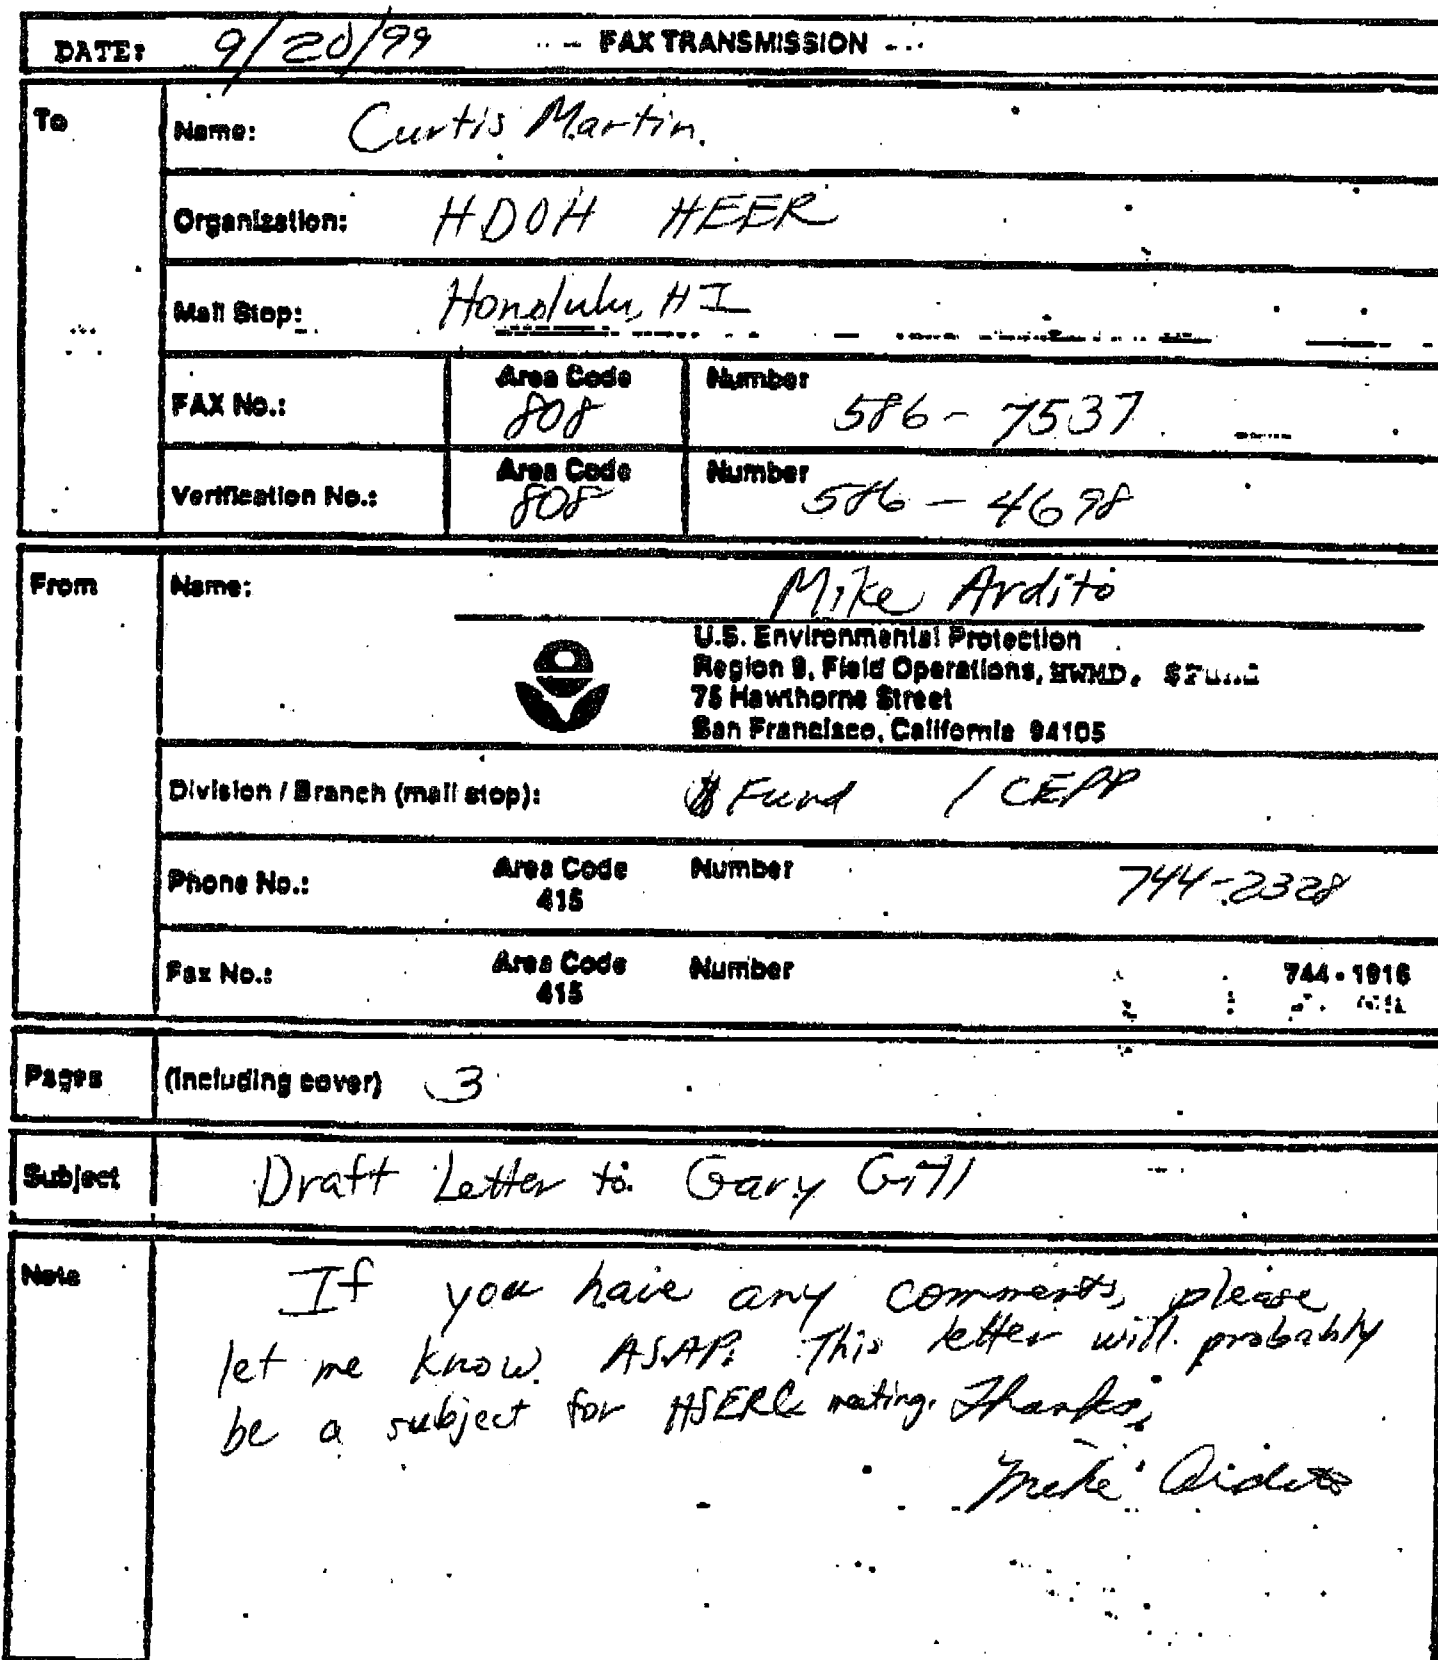 DATE: 9/20/99 -- FAX TRANSMISSION --
To
Name: Curtis Martin
Organization: HDOH HEER
Mail Stop: Honolulu, HI
FAX No.: Area Code 808 Number 586-7537
Verification No.: Area Code 808 Number 586-4698
From
Name: Mike Ardito
U.S. Environmental Protection
Region 9, Field Operations, HWMD, $Fund
75 Hawthorne Street
San Francisco, California 94105
Division / Branch (mail stop): $ Fund / CEPP
Phone No.: Area Code 415 Number 744-2328
Fax No.: Area Code 415 Number 744-1916
Pages (including cover) 3
Subject Draft Letter to Gary Gill
Note If you have any comments, please
let me know ASAP. This letter will probably
be a subject for HSERC meeting. Thanks,
Mike Ardito